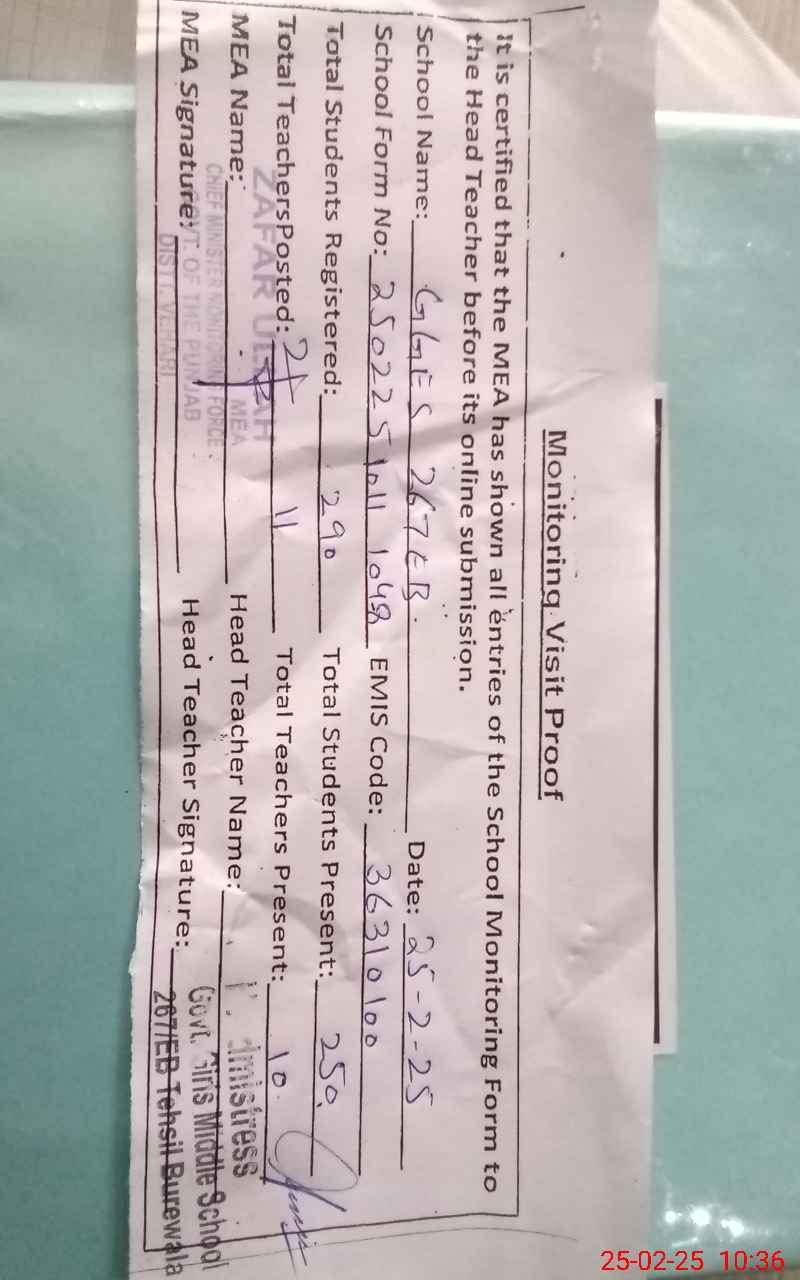 Monitoring Visit Proof
It is certified that the MEA has shown all entries of the School Monitoring Form to
the Head Teacher before its online submission.
School Name: GGES 267EB. Date: 25-2-25
School Form No: 250225 1011 1048 EMIS Code: 36310100
Total Students Registered: 290 Total Students Present: 250
Total TeachersPosted: 11 Total Teachers Present: 10
MEA Name: Head Teacher Name:
MEA Signature: Head Teacher Signature:
ZAFAR ULLAH
MEA
CHIEF MINISTER MONITORING FORCE
GOVT. OF THE PUNJAB
DISTT. VEHARI
Govt. Girls Middle School
267/EB Tehsil Burewala
25-02-25 10:36